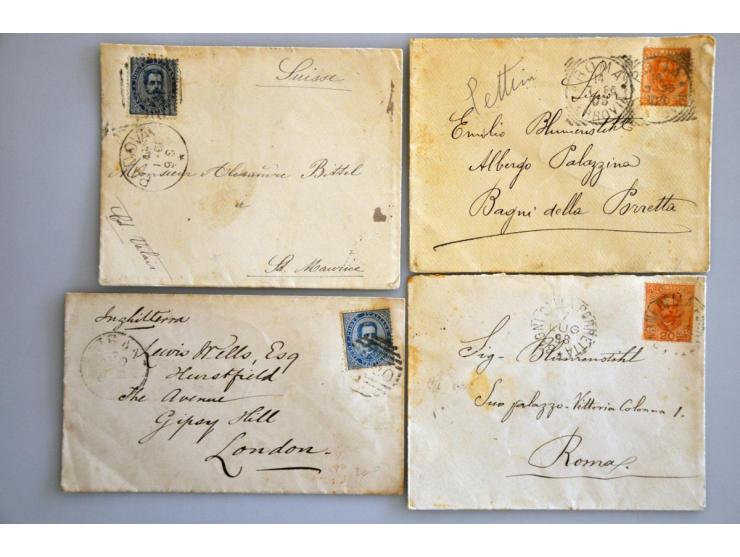 Suisse
PADOVA
Monsieur Alexandre Bittel
St. Maurice
Lettera
ROMA
FERROVIA
Sigr
Emilio Blumenstihl
Albergo Palazzina
Bagni della Porretta
Inghilterra
Lewis Wells, Esq
Hurstfield
The Avenue
Gipsy Hill
London.
PORRETTA
LUG
98
Sig. Blumenstihl
Suo palazzo - Vittoria Colonna 1.
Roma